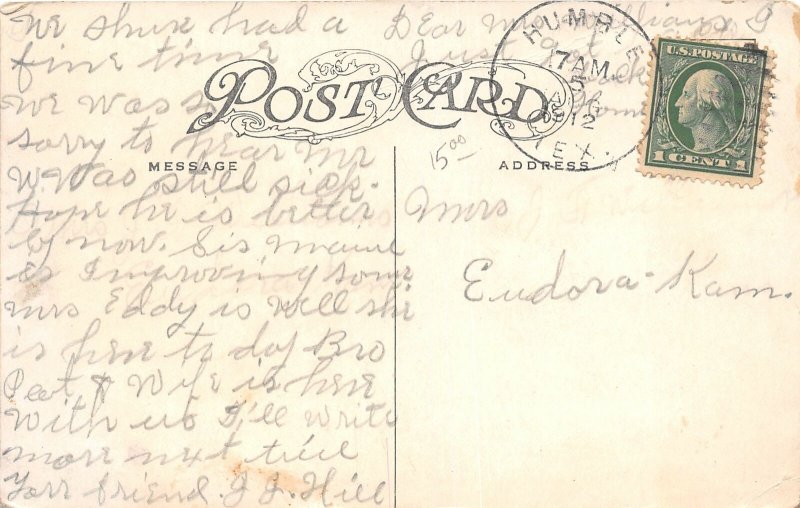 Dear Mrs Williams I
Just got
home
We shure had a
fine time
We was so
sorry to hear Mr
W. Was still sick.
Hope he is better
by now. Sis Maud
is Improving some
Mrs Eddy is well she
is here to day Bro
Peat & Wife is here
With us I'll write
more next time
Your friend J. J. Hill
POST CARD
MESSAGE
ADDRESS
15 00
HUMBLE
7 AM
5
12
TEX.
U.S. POSTAGE
1 CENT 1
Mrs
Eudora Kan.